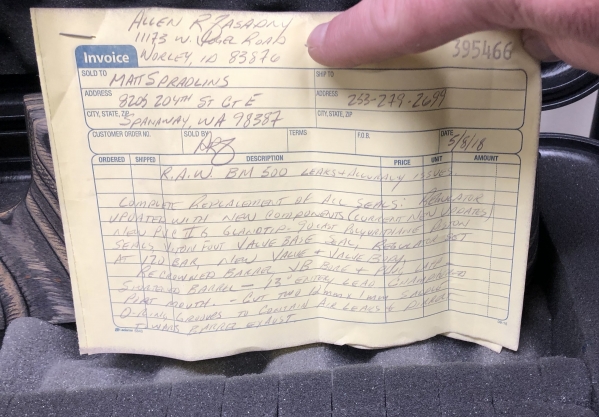 ALLEN R ZASADNY
11173 W. ROAD
WORLEY, ID 83876
395466
Invoice
SOLD TO
MATT SPRADLINS
SHIP TO
ADDRESS
8208 204TH ST CT E
ADDRESS
253-279-2699
CITY, STATE, ZIP
SPANAWAY, WA 98387
CITY, STATE, ZIP
CUSTOMER ORDER NO.
SOLD BY
TERMS
F.O.B.
DATE
5/8/18
ORDERED SHIPPED DESCRIPTION PRICE UNIT AMOUNT
R.A.W. BM 500 LEAKS & ACCURACY ISSUES
COMPLETE REPLACEMENT OF ALL SEALS: REGULATOR
UPDATED WITH NEW COMPONENTS (CURRENT NEW
NEW PVC II 6 POLYURETHANE
SEALS VALVE BASE SEAL, REGULATOR SET
AT 120 BAR, NEW VALVE & VALVE BODY,
RECROWNED BARREL,
BARREL - 13" LEAD CHAMFERED
PORT MOUTH. - CUT TWO 12mm x 1mm
O-RING GROOVES TO CONTAIN AIR LEAKS & DIRECT
BARREL